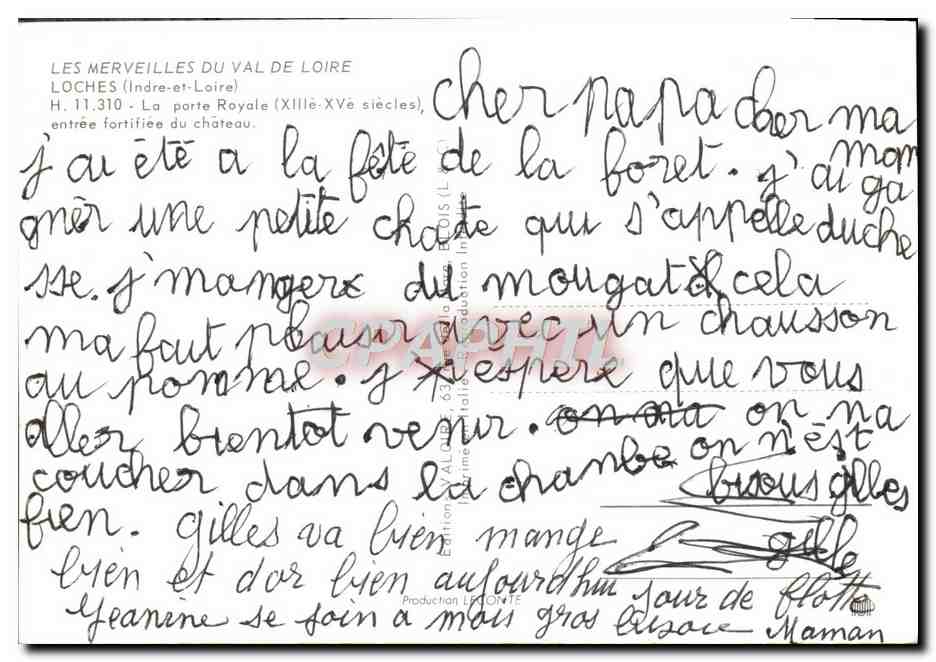 LES MERVEILLES DU VAL DE LOIRE
LOCHES (Indre-et-Loire)
H. 11.310 - La porte Royale (XIIIè-XVè siècles),
entrée fortifiée du château.
cher papa cher ma
man
j'ai été a la fête de la foret. j'ai ga
gnèr une petite chate qui s'appelle duche
sse. j'manger du mougat cela
ma fait plaisir avec un chausson
au pomme. j espere que vous
aller bientot venir. on na
coucher dans la chambe on n'ést
bien. bisous gilles
gille
gilles va bien mange
bien et dor bien aujourdhui jour de flotte
Jeanine se soin a mois gros bisous Maman
Production LECONTE
CPAPHIL